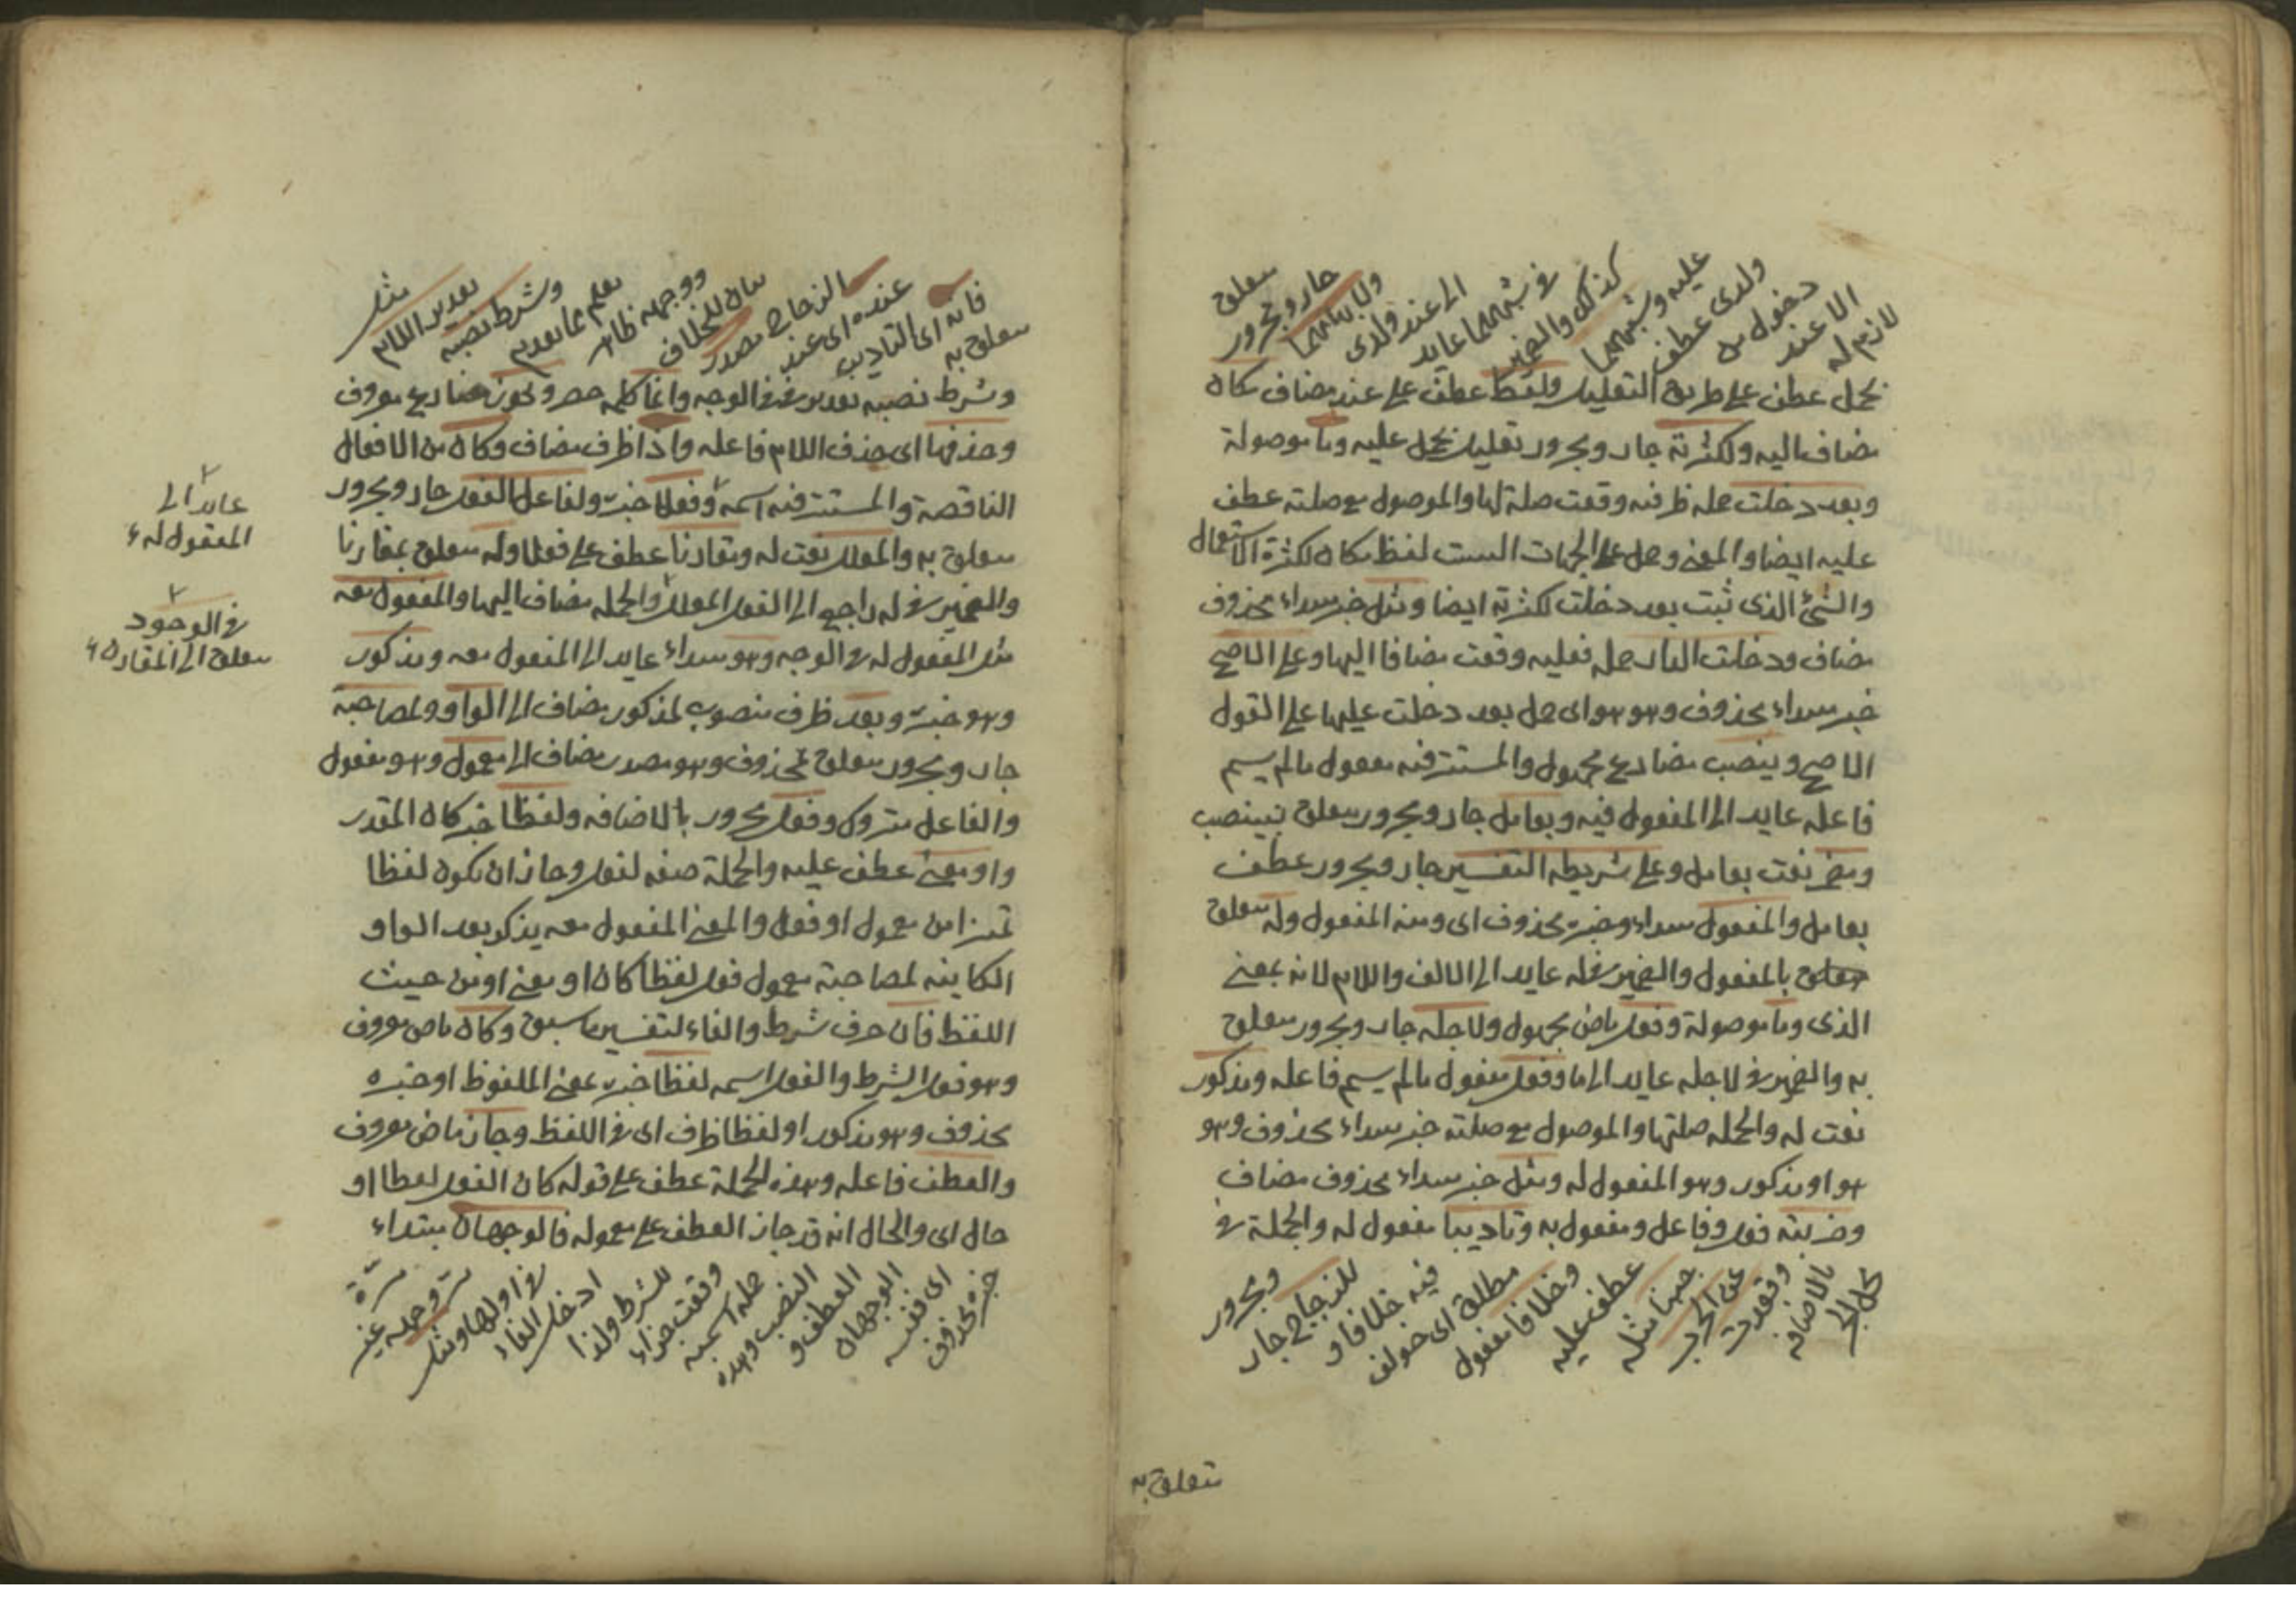 لازم له
الا عند
دخول من
ولدى عطف
عليه وشبههما
كذلك والضمير
في شبههما عايد
الى عند ولدى
ولابهامهما
جار ومجرور
متعلق
بحمل عطف على طريق التعليل ولفظ عطف على عند مضاف مكان
مضاف اليه ولكثرته جار ومجرور تعليل بحمل عليه وما موصولة
وبعد دخلت جملة ظرفية وقعت صلة لها والموصول مع صلته عطف
عليه ايضا والمعنى وحمل على الجهات الست لفظ مكان لكثرة الاستعمال
والشئ الذى ثبت بعد دخلت لكثرته ايضا ومثل خبر مبتداء محذوف
مضاف ودخلت الدار جملة فعليه وقعت مضافا اليها وعلى الاصح
خبر مبتداء محذوف وهو هو اى حمل بعد دخلت عليها على القول
الاصح وينصب مضارع مجهول والمستتر فيه مفعول مالم يسم
فاعله عايد الى المفعول فيه وبعامل جار ومجرور متعلق بينصب
ومضمر نعت بعامل وعلى شريطه التفسير جار ومجرور عطف
بعامل والمفعول مبتداء وخبره محذوف اى ومنه المفعول وله متعلق
بالمفعول والضمير في له عايد الى الالف واللام لانه بمعنى
الذى وما موصولة وفعل ماض مجهول ولاجله جار ومجرور متعلق
به والضمير في لاجله عايد الى ما وفعل مفعول مالم يسم فاعله ومذكور
نعت له والجمله صلتها والموصول مع صلته خبر مبتداء محذوف وهو
هو او مذكور وهو المفعول له ومثل خبر مبتداء محذوف مضاف
وضربته فعل وفاعل ومفعول به وتاديبا مفعول له والجملة في
محل الجر
بالاضافه
وقعدت
عن الحرب
جبنا مثله
عطف عليه
وخلافا مفعول
مطلق اى خولف
فيه خلافا و
للزجاج جار
ومجرور
متعلق به
متعلق به
فانه اى التاديب
عنده اى عند
الزجاج مصدر
بيان للخلاف
ووجهه ظاهر
يعلم مما تقدم
وشرط نصبه
تقدير اللام
مثل
وشرط نصبه تقدير في في الوجه وانما كلمه حصر ويجوز مضارع معروف
وحذفها اى حذف اللام فاعله واذا ظرف مضاف وكان من الافعال
الناقصة والمستتر فيه اسمه وفعلا خبره ولفاعل الفعل جار ومجرور
متعلق به والمعلل نعت له ومقارنا عطف على فعلا وله متعلق بمقارنا
والضمير في له راجع الى الفعل المعلل والجمله مضاف اليها والمفعول معه
مثل المفعول له في الوجه وهو مبتداء عايد الى المفعول معه ومذكور
وهو خبره وبعد ظرف منصوب لمذكور مضاف الى الواو ولمصاحبة
جار ومجرور متعلق بمحذوف وهو مصدر مضاف الى معمول وهو مفعول
والفاعل متروك وفعل مجرور بالاضافه ولفظا خبر كان المقدر
او معنى عطف عليه والجملة صفه لفعل وجاز ان يكون لفظا
تميزا من معمول او فعل والمعنى المفعول معه يذكر بعد الواو
الكاينه لمصاحبة معمول فعل لفظا كان او معنى او من حيث
اللفظ فان حرف شرط والفاء لتفسير ما سبق وكان ماض معروف
وهو فعل الشرط والفعل اسمه لفظا خبره بمعنى الملفوظ او خبره
محذوف وهو مذكور او لفظا ظرف اى في اللفظ وجاز ماض معروف
والعطف فاعله وهذه الجملة عطف على قوله كان الفعل لفظا او
حال اى والحال انه قد جاز العطف على معموله فالوجهان مبتداء
خبره محذوف
اى ففيه
الوجهان
العطف و
النصب وهذه
جمله اسميه
وقعت جزاء
للشرط ولذا
ادخل الفاء
في اولها ومثل
مر وجهه غير
مرة
عايد الى
المفعول له
في الوجود
متعلق الى المقارن